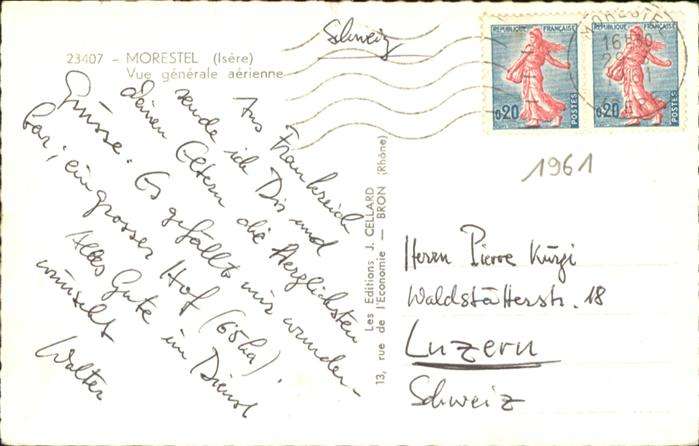 Schweiz
23407 - MORESTEL (Isère)
Vue générale aérienne
Aus Frankreich
sende ich Dir und
deinen Eltern die Herzlichsten
Grüsse. Es gefällt mir wunder-
bar; ein grosser Hof (65ha)!
Alles Gute im Dienst
wünscht
Walter
Les Editions J. CELLARD
13, rue de l'Economie — BRON (Rhône)
REPUBLIQUE FRANÇAISE
0,20
POSTES
REPUBLIQUE FRANÇAISE
0,20
POSTES
MORESTEL
1961
Herrn Pierre Kürzi
Waldstätterstr. 18
Luzern
Schweiz